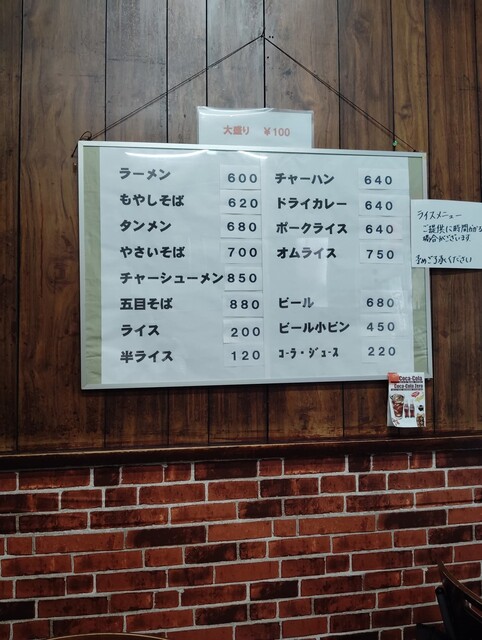 大盛り ￥100
ラーメン 600
もやしそば 620
タンメン 680
やさいそば 700
チャーシューメン 850
五目そば 880
ライス 200
半ライス 120
チャーハン 640
ドライカレー 640
ポークライス 640
オムライス 750
ビール 680
ビール小ビン 450
ｺｰﾗ・ｼﾞｭｰｽ 220
ライスメニュー
ご提供に時間がかる
場合がございます
予めご了承ください
Coca-Cola
Coca-Cola Zero